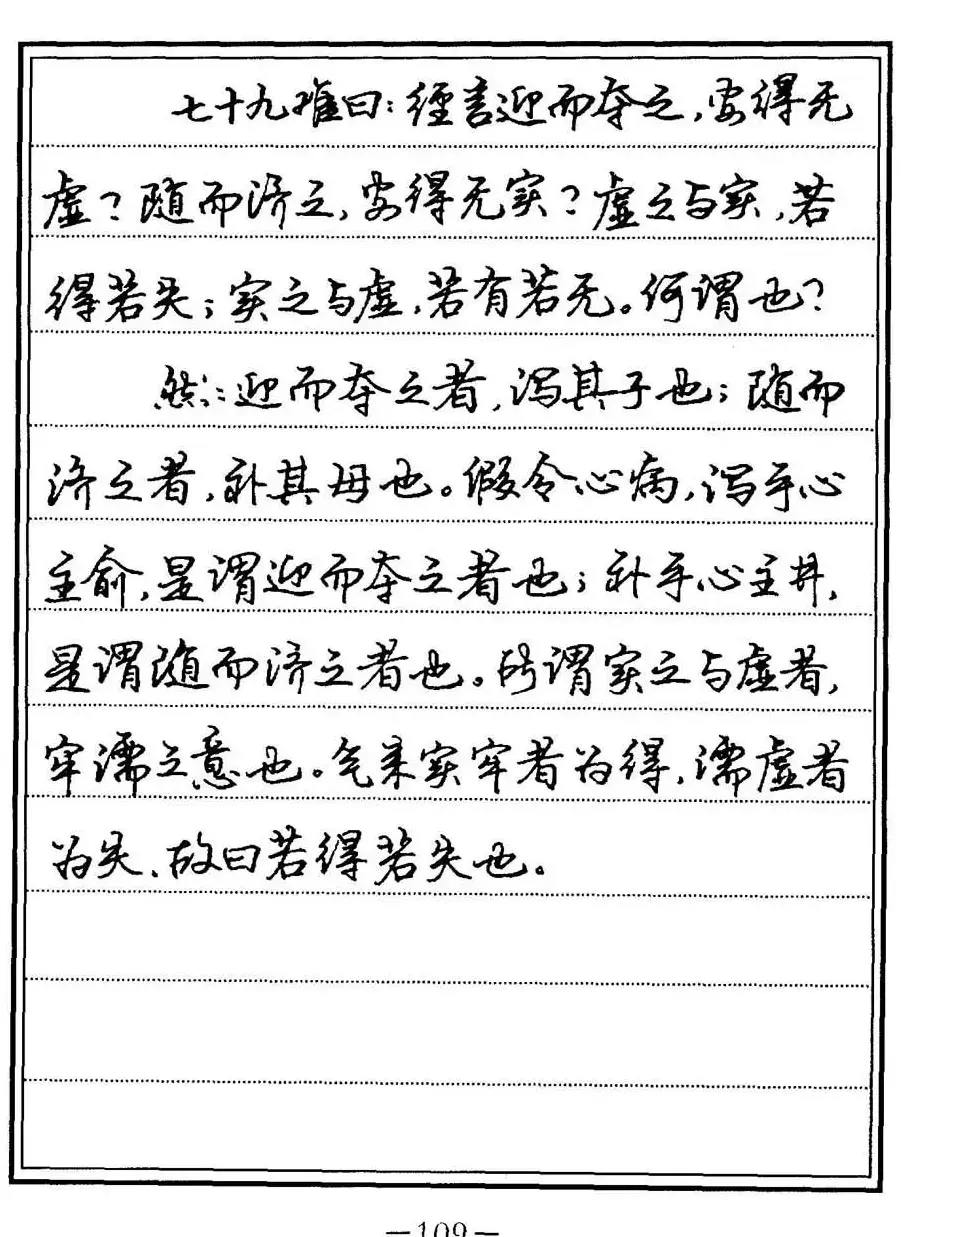 七十九难曰：经言迎而夺之，安得无
虚？随而济之，安得无实？虚之与实，若
得若失；实之与虚，若有若无。何谓也？
然：迎而夺之者，泻其子也；随而
济之者，补其母也。假令心病，泻手心
主俞，是谓迎而夺之者也；补手心主井，
是谓随而济之者也。所谓实之与虚者，
牢濡之意也。气来实牢者为得，濡虚者
为失、故曰若得若失也。
—109—